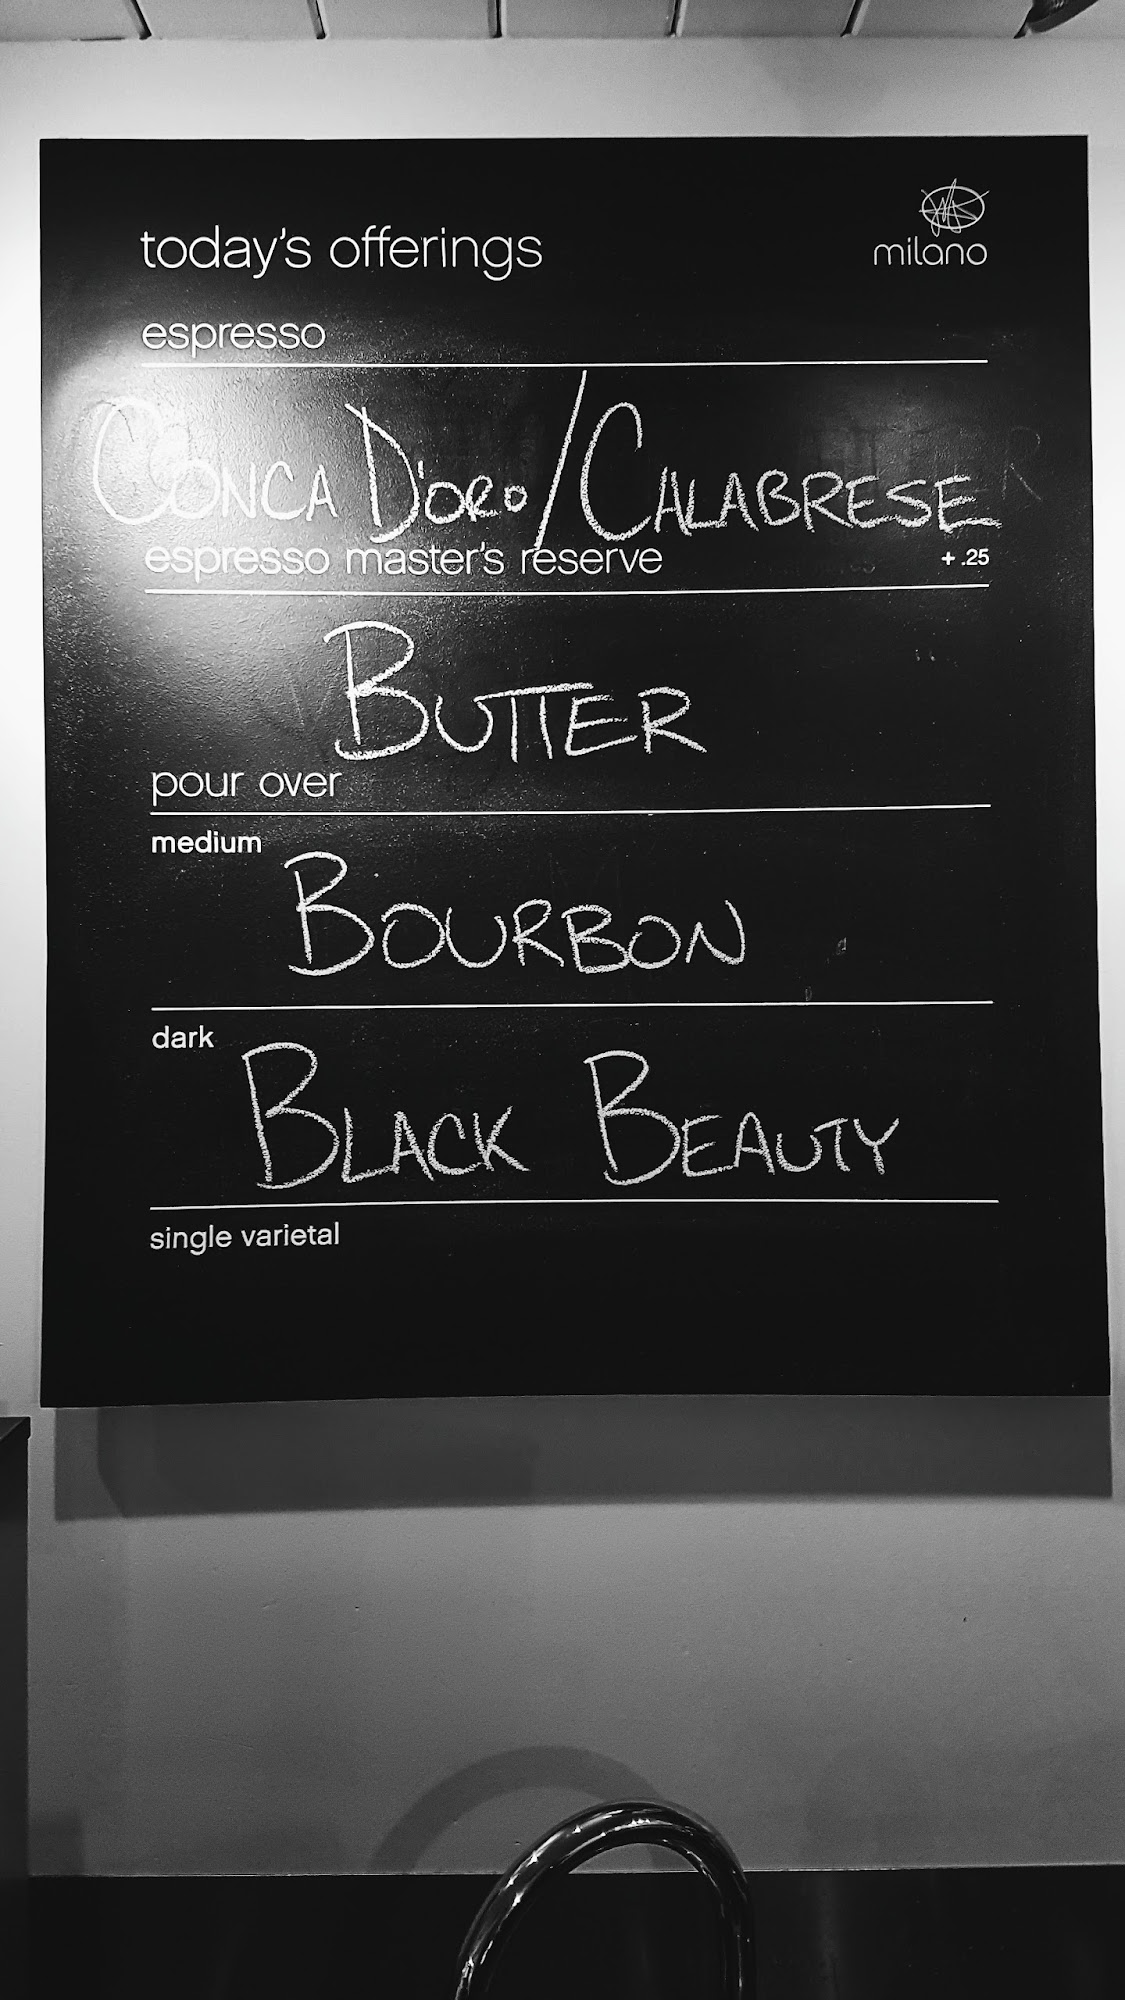 today's offerings
milano
espresso
CONCA D'ORO/CALABRESE
espresso master's reserve +.25
BUTTER
pour over
medium
BOURBON
dark
BLACK BEAUTY
single varietal